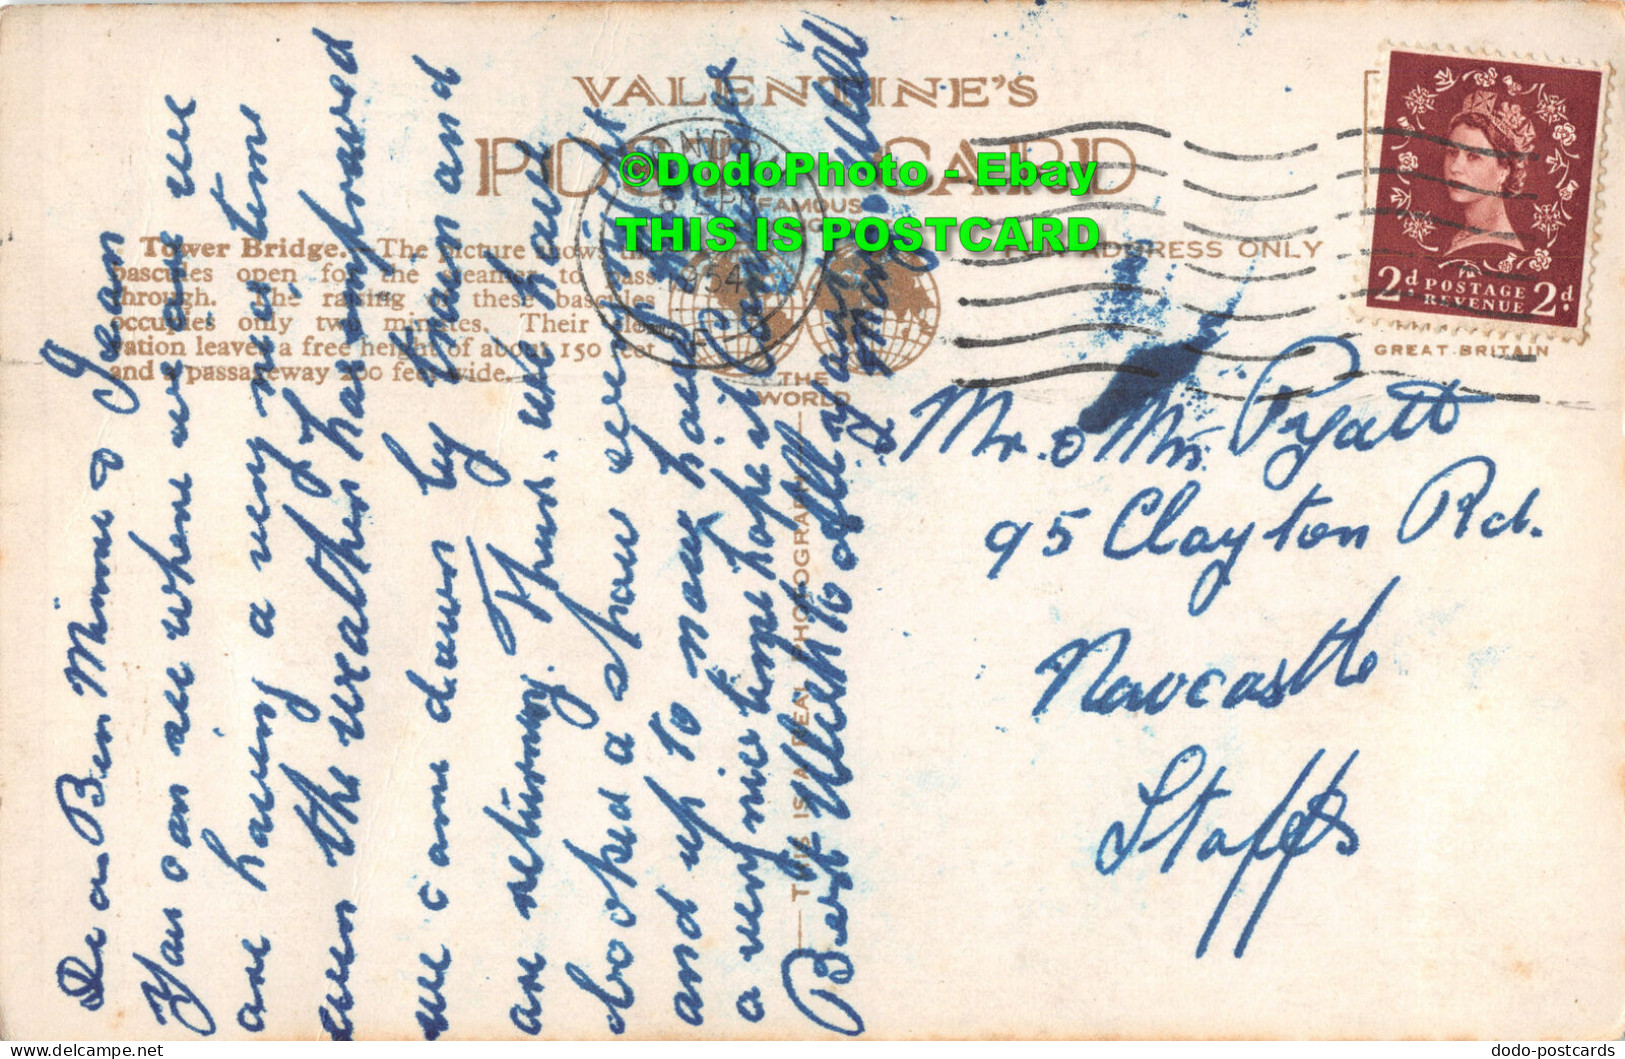 VALENTINE'S
POST CARD
FAMOUS
THE
WORLD
FOR ADDRESS ONLY
GREAT BRITAIN
©DodoPhoto - Ebay
THIS IS POSTCARD
2d POSTAGE REVENUE 2d
LONDON
1954
Tower Bridge.—The picture shows the
bascules open for the steamer to pass
through. The raising of these bascules
occupies only two minutes. Their elev-
vation leaves a free height of about 150 feet
and a passageway 200 feet wide.
THIS IS A REAL PHOTOGRAPH
Dear Ben Minnie & Jean
You can see where we are we
are having a very nice time
even the weather has improved
we came down by bus and
are returning Thur. we have
booked a show every night
and up to now having had
a very nice time hope it continues
Best Wish to All
Mr. & Mrs Pyatt
95 Clayton Rd.
Newcastle
Staffs
dodo-postcards